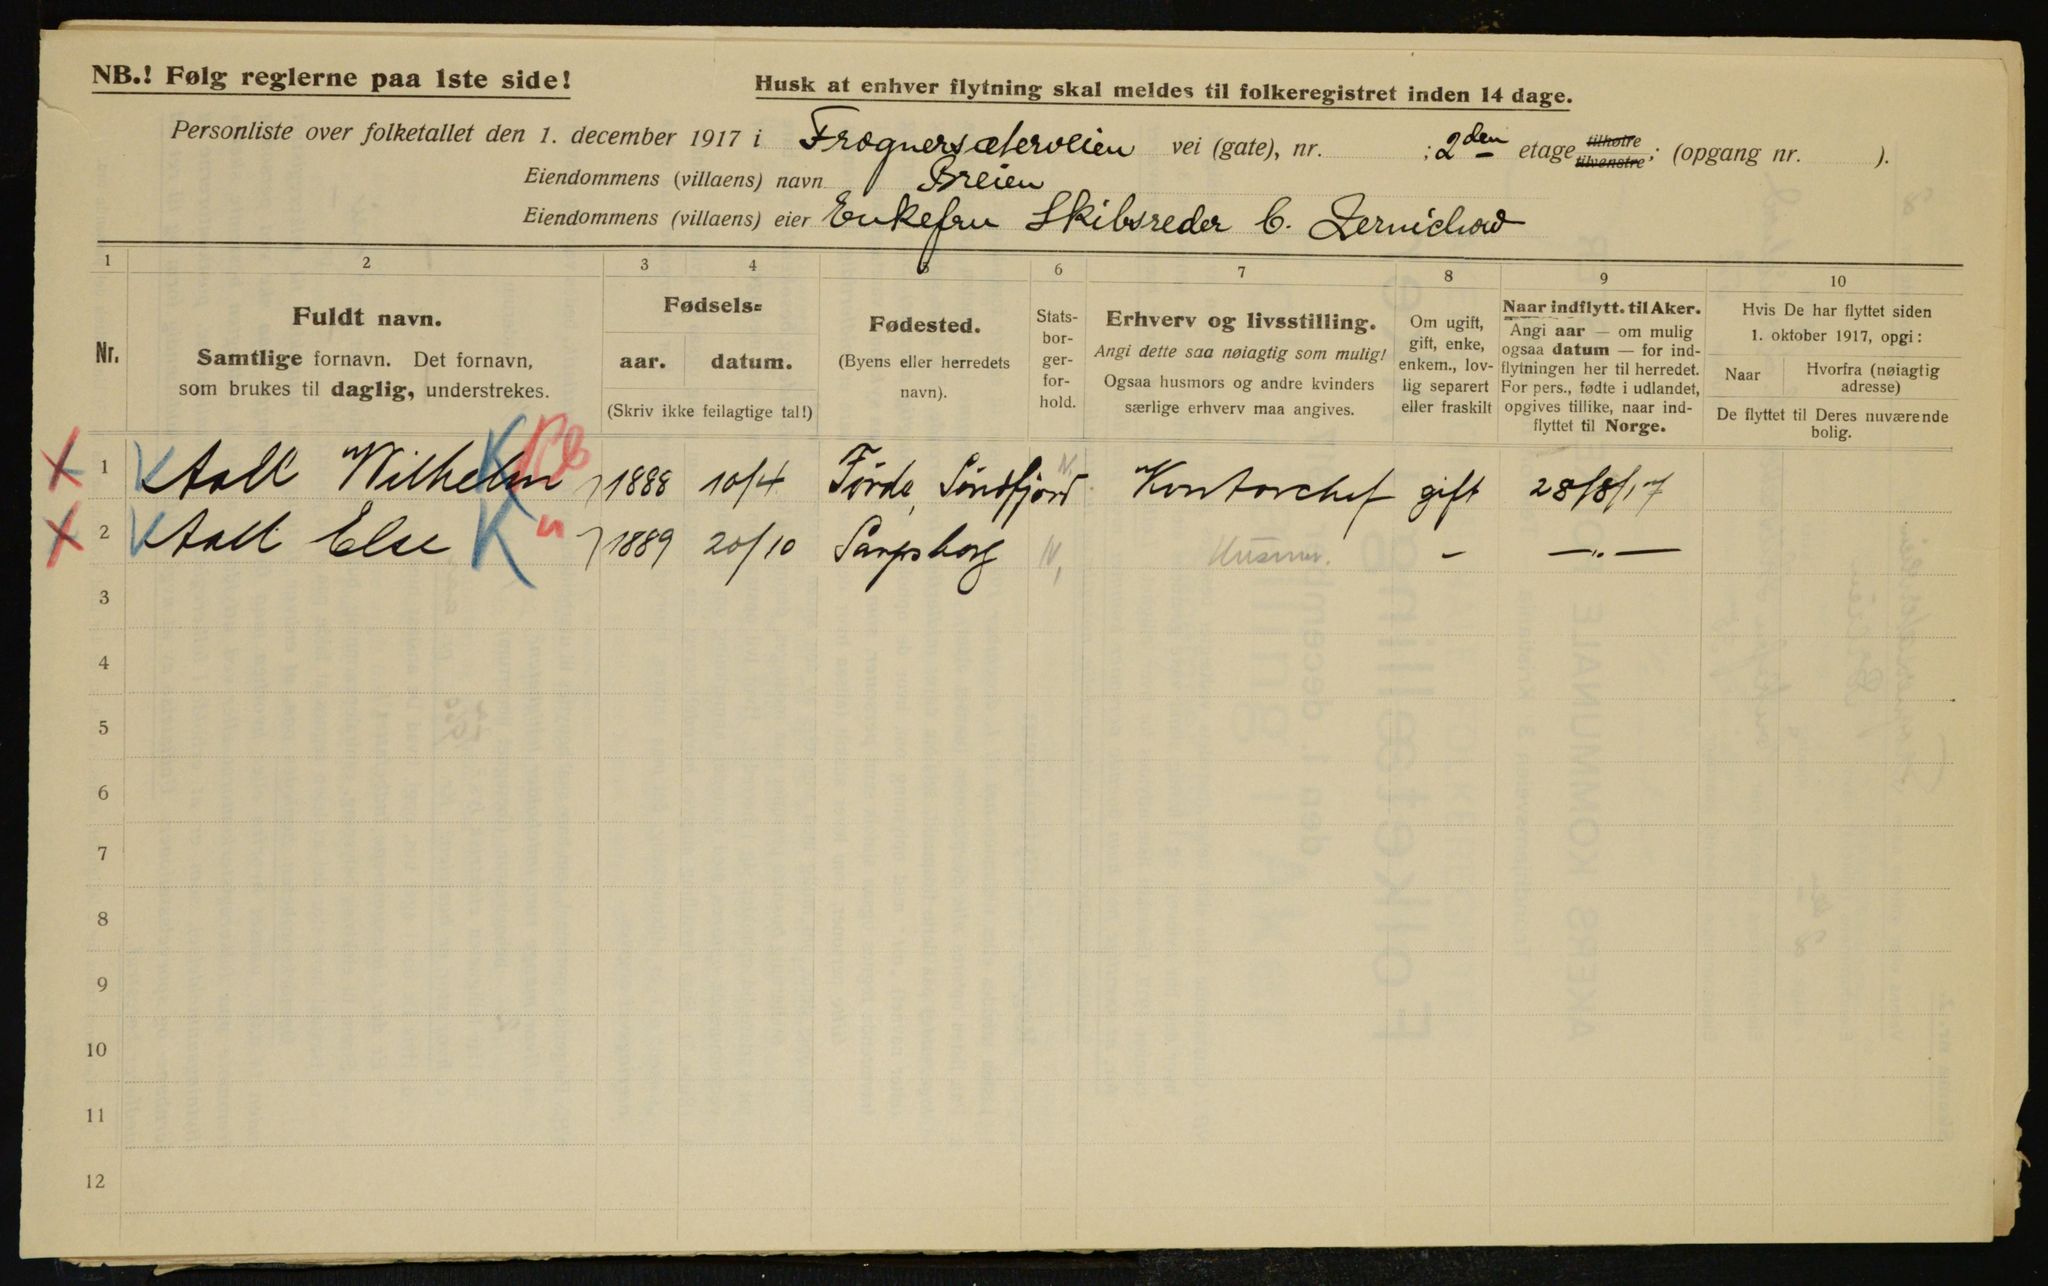 NB.! Følg reglerne paa 1ste side!
Husk at enhver flytning skal meldes til folkeregistret inden 14 dage.
Personliste over folketallet den 1. december 1917 i Frognersæterveien vei (gate), nr. ; 2den etage tilhøire tilvenstre ; (opgang nr. ).
Eiendommens (villaens) navn Breien
Eiendommens (villaens) eier Enkefru Skibsreder C. Zernichow
1 2 3 4 5 6 7 8 9 10
Nr.
Fuldt navn.
Samtlige fornavn. Det fornavn,
som brukes til daglig, understrekes.
Fødsels-
aar. datum.
(Skriv ikke feilagtige tal!)
Fødested.
(Byens eller herredets
navn).
Stats-
bor-
ger-
for-
hold.
Erhverv og livsstilling.
Angi dette saa nøiagtig som mulig!
Ogsaa husmors og andre kvinders
særlige erhverv maa angives.
Om ugift,
gift, enke,
enkem., lov-
lig separert
eller fraskilt
Naar indflytt. til Aker.
Angi aar — om mulig
ogsaa datum — for ind-
flytningen her til herredet.
For pers., fødte i utlandet,
opgives tillike, naar ind-
flyttet til Norge.
Hvis De har flyttet siden
1. oktober 1917, opgi:
Naar
Hvorfra (nøiagtig
adresse)
De flyttet til Deres nuværende
bolig.
X 1 K Aall Wilhelm K 1888 10/4 Førde, Søndfjord N. Kontorchef gift 28/8/17
X 2 K Aall Else K " 1889 20/10 Sarpsborg N, Husmor. - —"—
3
4
5
6
7
8
9
10
11
12